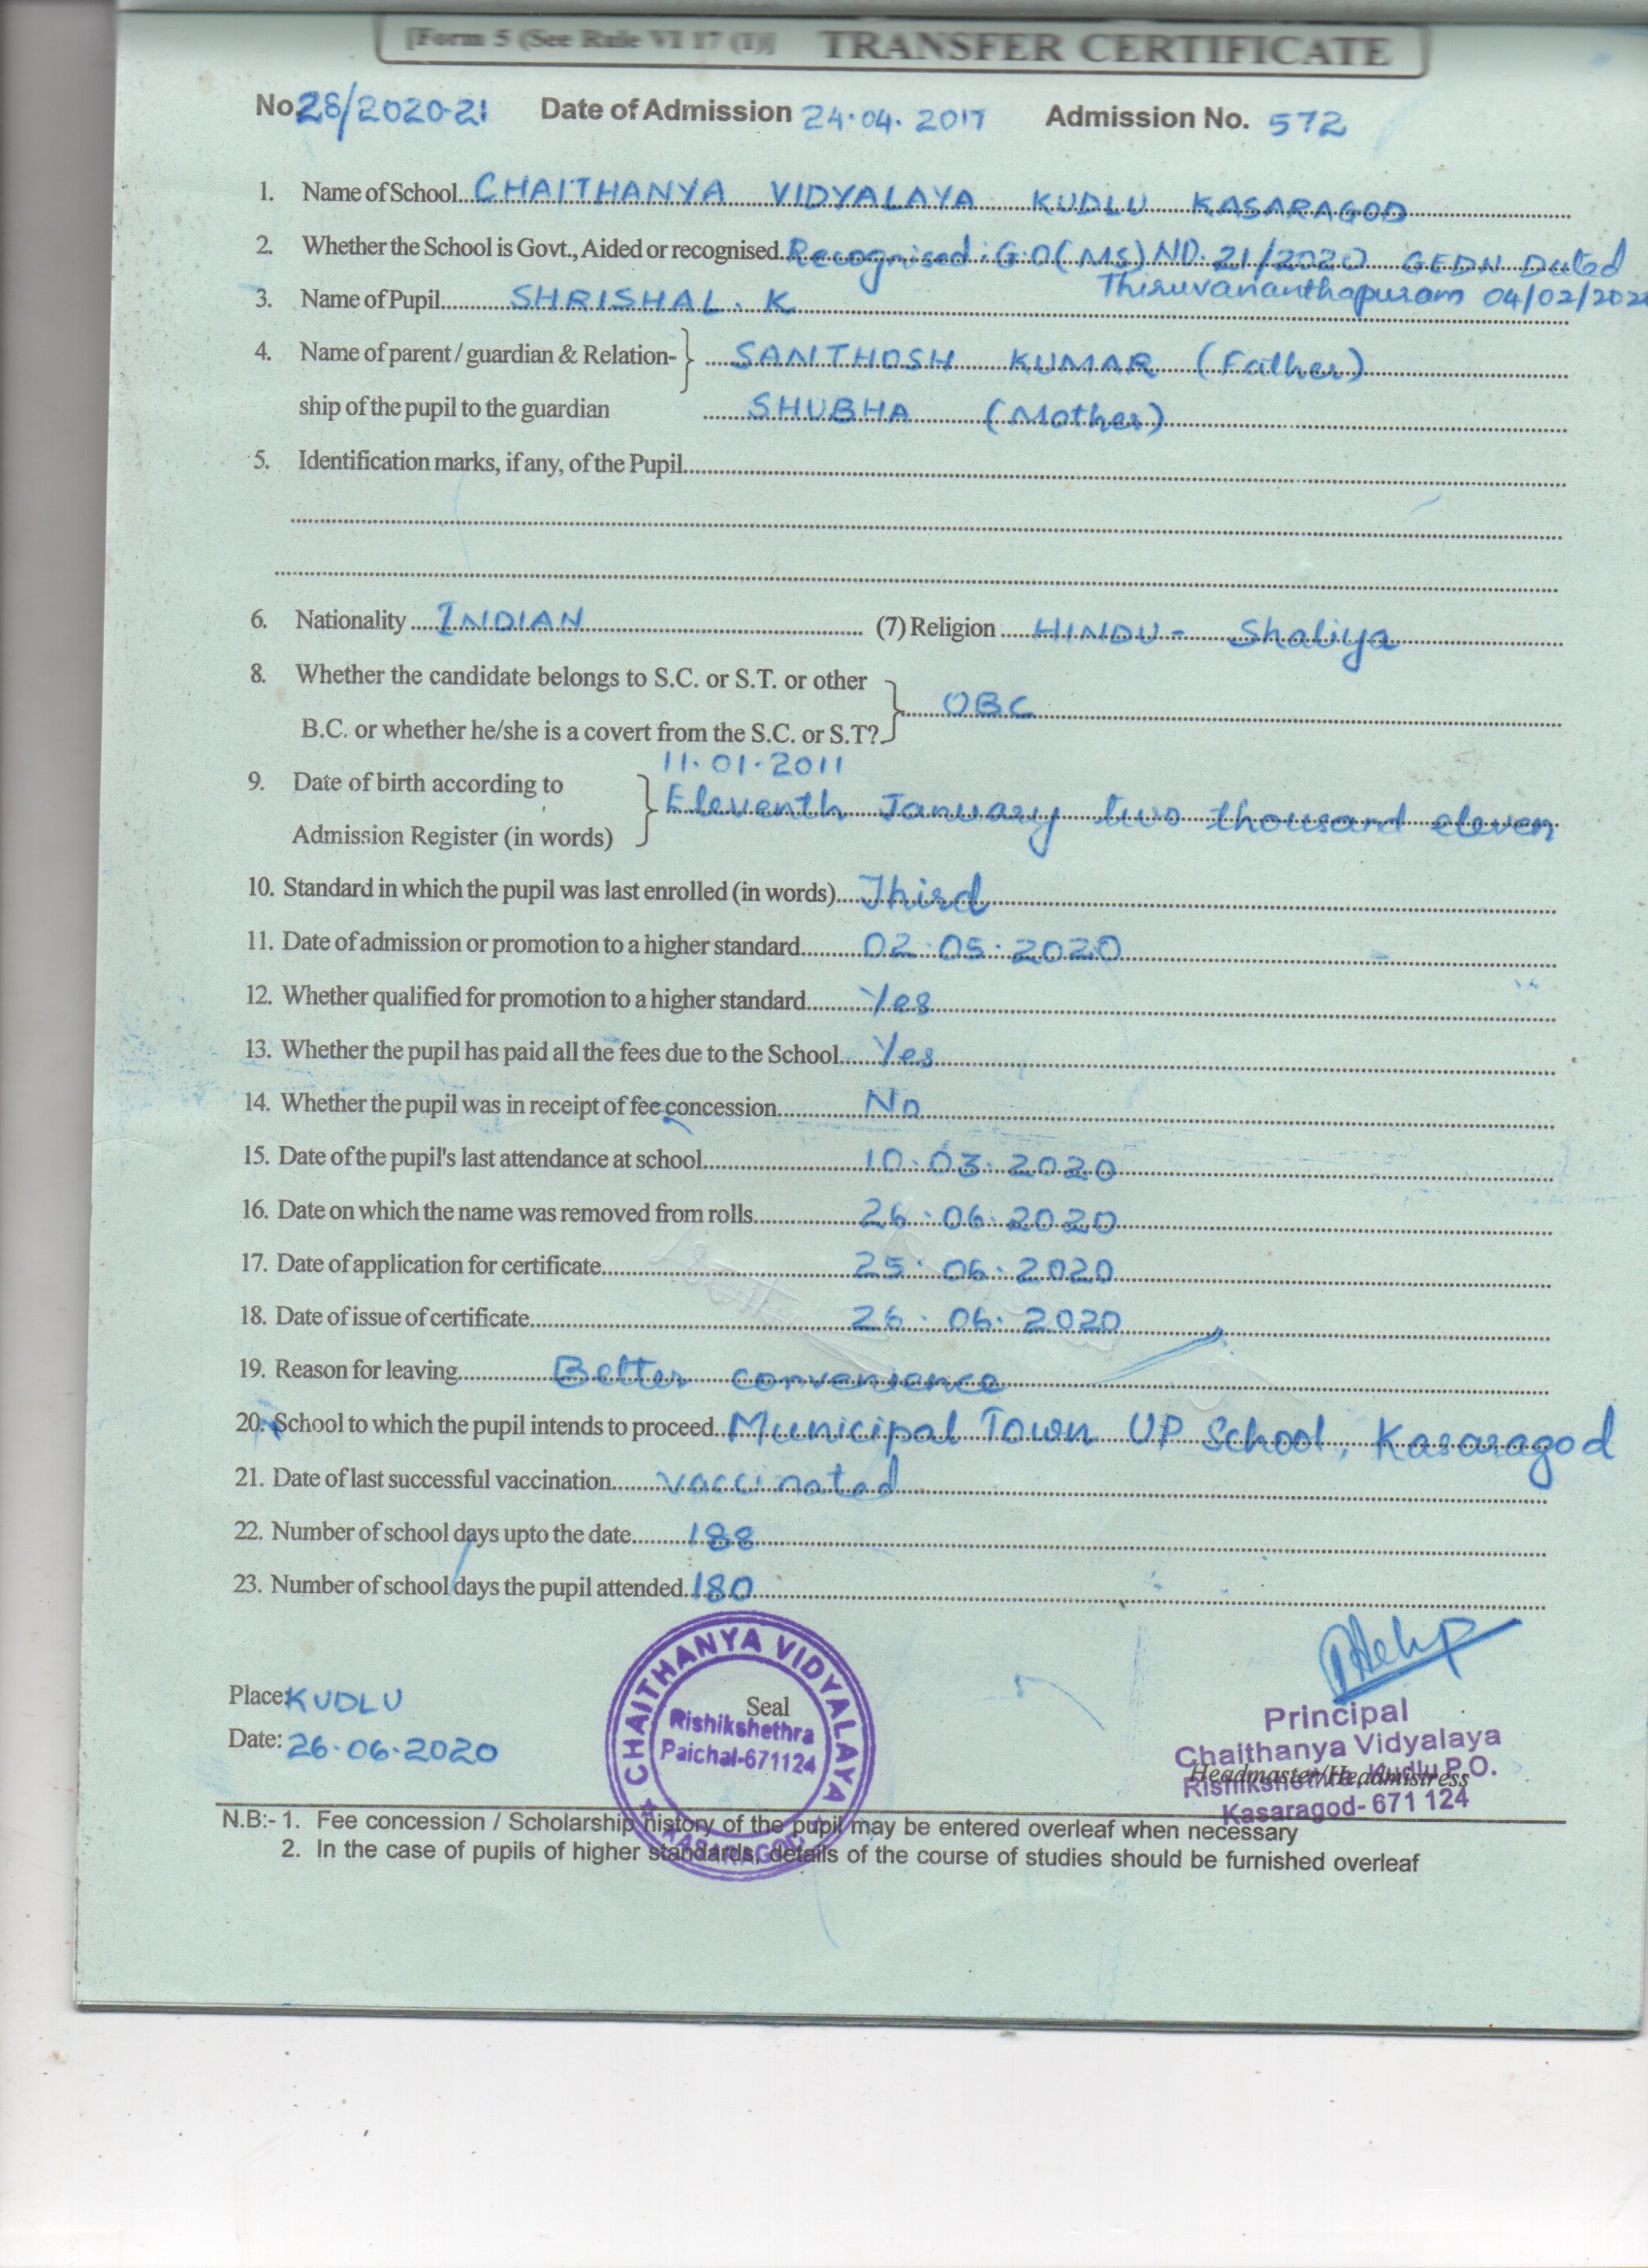 [Form 5 (See Rule VI 17 (1)] TRANSFER CERTIFICATE
No. 28/2020-21 Date of Admission 24.04.2017 Admission No. 572
1. Name of School CHAITHANYA VIDYALAYA KUDLU KASARAGOD
2. Whether the School is Govt., Aided or recognised. Recognised: G.O(MS) NO. 21/2020 GEDN Dated
Thiruvananthapuram 04/02/202
3. Name of Pupil SHRISHAL. K
4. Name of parent / guardian & Relation- SANTHOSH KUMAR (Father)
ship of the pupil to the guardian SHUBHA (Mother)
5. Identification marks, if any, of the Pupil
6. Nationality INDIAN (7) Religion HINDU - Shaliya
8. Whether the candidate belongs to S.C. or S.T. or other
B.C. or whether he/she is a covert from the S.C. or S.T? OBC
11.01.2011
9. Date of birth according to Eleventh January two thousand eleven
Admission Register (in words)
10. Standard in which the pupil was last enrolled (in words) Third
11. Date of admission or promotion to a higher standard 02.05.2020
12. Whether qualified for promotion to a higher standard Yes
13. Whether the pupil has paid all the fees due to the School Yes
14. Whether the pupil was in receipt of fee concession No
15. Date of the pupil's last attendance at school 10.03.2020
16. Date on which the name was removed from rolls 26.06.2020
17. Date of application for certificate 25.06.2020
18. Date of issue of certificate 26.06.2020
19. Reason for leaving Better convenience
20. School to which the pupil intends to proceed Municipal Town UP School, Kasaragod
21. Date of last successful vaccination vaccinated
22. Number of school days upto the date 188
23. Number of school days the pupil attended 180
Place: KUDLU
Date: 26.06.2020
Seal
CHAITHANYA VIDYALAYA
Rishikshethra
Paichal-671124
KASARAGOD
Principal
Chaithanya Vidyalaya
Rishikshethra, Kudlu P.O.
Headmaster/Headmistress
Kasaragod- 671 124
N.B:- 1. Fee concession / Scholarship history of the pupil may be entered overleaf when necessary
2. In the case of pupils of higher standards, details of the course of studies should be furnished overleaf